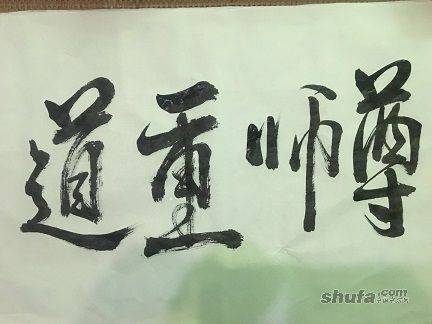 尊师重道
shufa.com